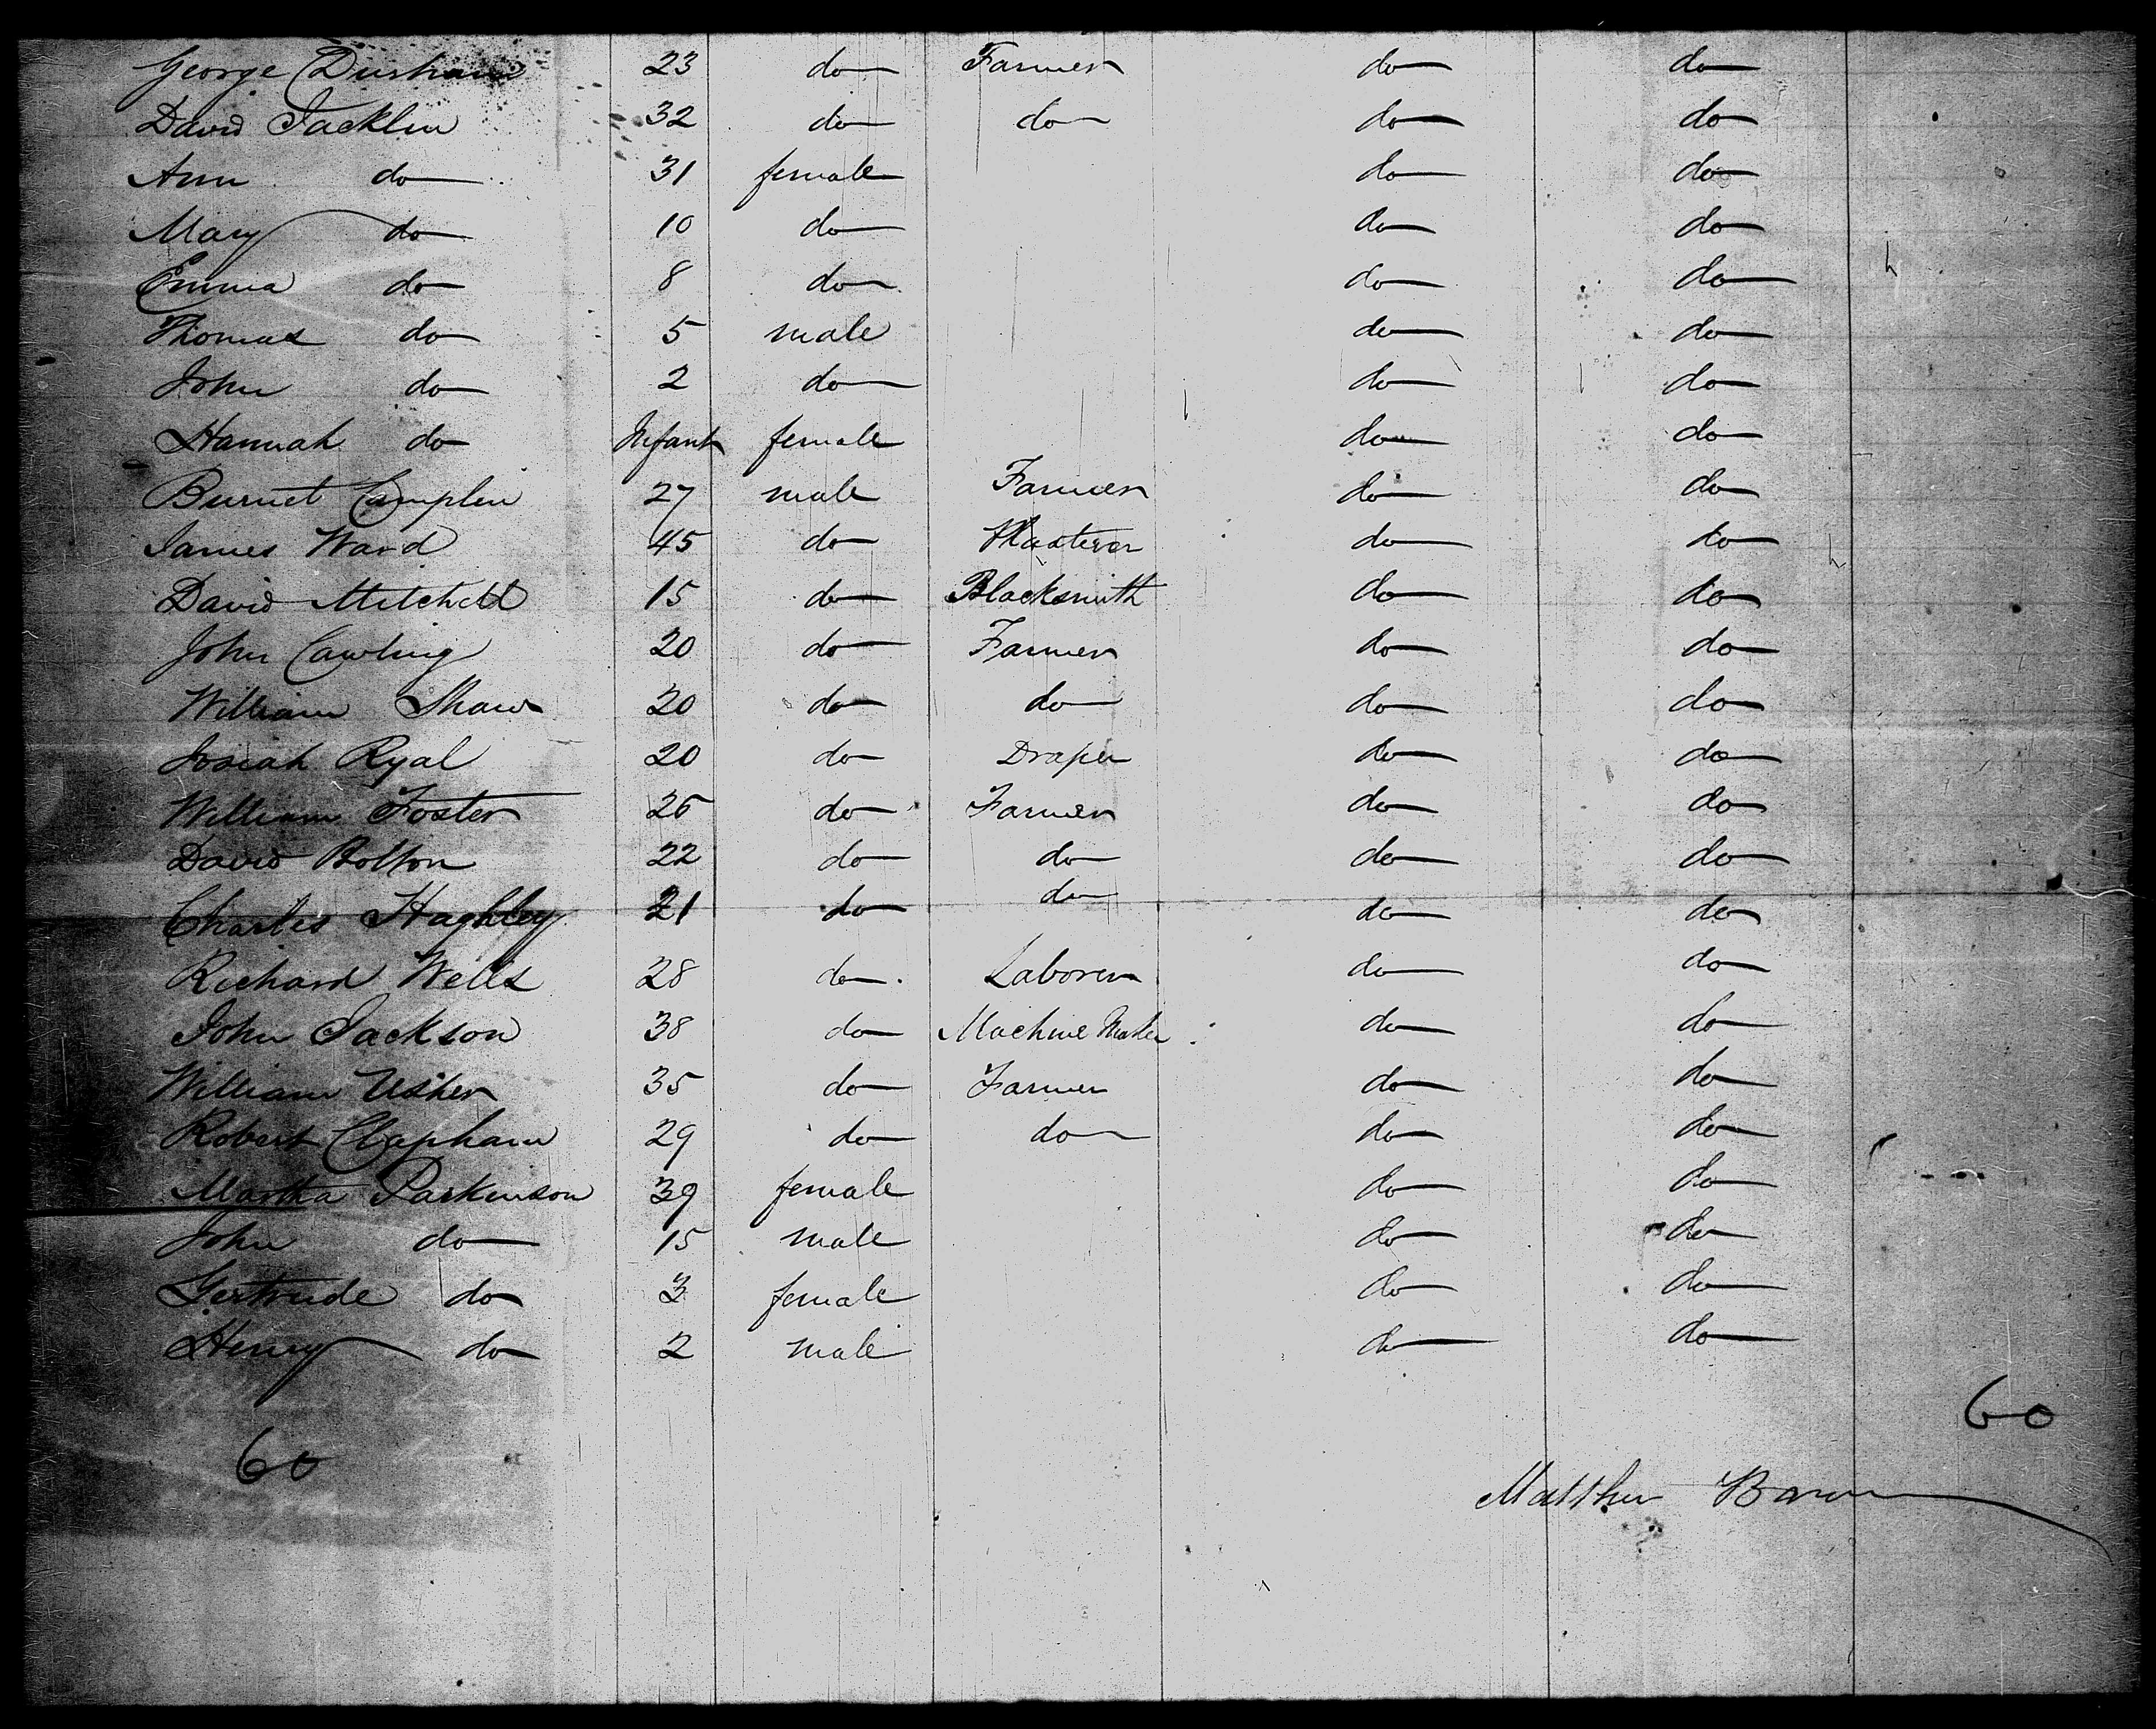 George Dusham 23 do Farmer do do
David Jacklin 32 do do do do
Ann do 31 female do do
Mary do 10 do do do
Emma do 8 do do do
Thomas do 5 male do do
John do 2 do do do
Hannah do Infant female do do
Burnet Camplin 27 male Farmer do do
James Ward 45 do Plasterer do do
David Mitchell 15 do Blacksmith do do
John Cawling 20 do Farmer do do
William Shaw 20 do do do do
Josiah Ryal 20 do Draper do do
William Foster 25 do Farmer do do
David Bolton 22 do do do do
Charles Haghley 21 do do do do
Richard Wells 28 do Laborer do do
John Jackson 38 do Machine Maker do do
William Usher 35 do Farmer do do
Robert Clapham 29 do do do do
Martha Parkinson 39 female do do
John do 15 male do do
Gertrude do 3 female do do
Henry do 2 male do do
60
60
Matthew